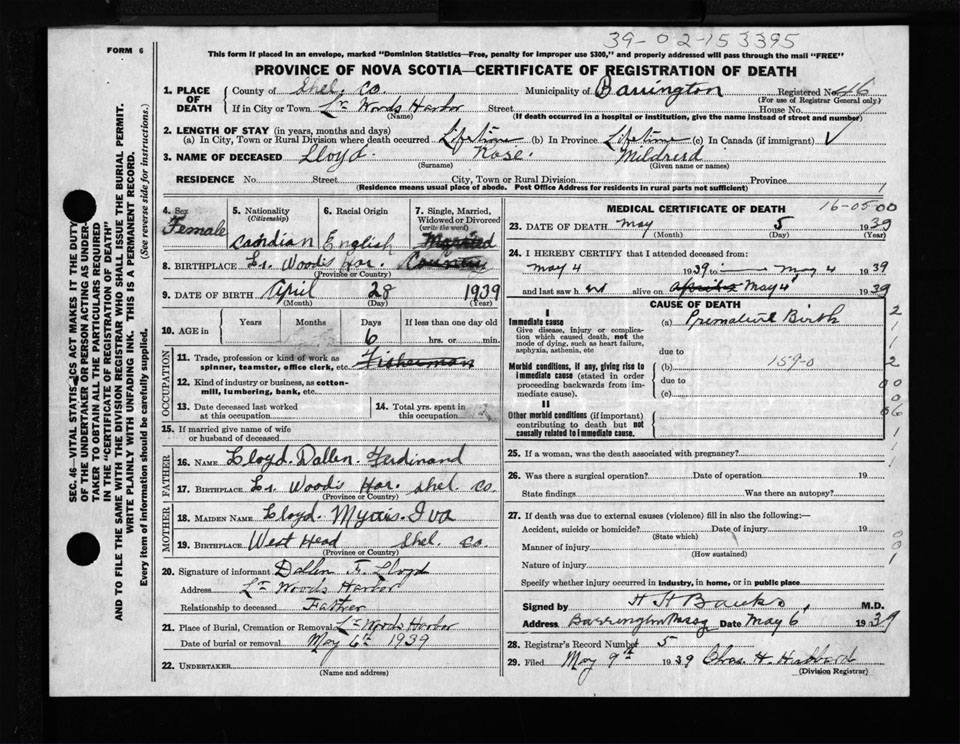 39-02-153395
FORM 6
This form if placed in an envelope, marked "Dominion Statistics—Free, penalty for improper use $300," and properly addressed will pass through the mail "FREE"
PROVINCE OF NOVA SCOTIA—CERTIFICATE OF REGISTRATION OF DEATH
1. PLACE OF DEATH
County of Shel; Co. Municipality of Barrington Registered No. 46
(For use of Registrar General only)
If in City or Town Lr Woods Harbor Street House No.
(Name) (If death occurred in a hospital or institution, give the name instead of street and number)
2. LENGTH OF STAY (in years, months and days)
(a) In City, Town or Rural Division where death occurred Lifetime (b) In Province Lifetime (c) In Canada (if immigrant) ✓
3. NAME OF DECEASED Lloyd. Rose. Mildred
(Surname) (Given name or names)
RESIDENCE No. Street City, Town or Rural Division Province
(Residence means usual place of abode. Post Office Address for residents in rural parts not sufficient)
4. Sex Female
5. Nationality (Citizenship) Canadian
6. Racial Origin English
7. Single, Married, Widowed or Divorced (write the word) Married
8. BIRTHPLACE Lr. Woods Har. Country
(Province or Country)
9. DATE OF BIRTH April 28 1939
(Month) (Day) (Year)
10. AGE in Years Months Days If less than one day old
6 hrs. or min.
OCCUPATION
11. Trade, profession or kind of work as spinner, teamster, office clerk, etc. Fisherman
12. Kind of industry or business, as cotton-mill, lumbering, bank, etc.
13. Date deceased last worked at this occupation
14. Total yrs. spent in this occupation
15. If married give name of wife or husband of deceased
FATHER
16. NAME Lloyd. Dallen. Ferdinand
17. BIRTHPLACE Lr. Woods Har. Shel. Co.
(Province or Country)
MOTHER
18. MAIDEN NAME Lloyd. Iva
19. BIRTHPLACE West Head Shel. Co.
(Province or Country)
20. Signature of informant Dallen F. Lloyd
Address Lr Woods Harbor
Relationship to deceased Father
21. Place of Burial, Cremation or Removal Lr Woods Harbor
Date of burial or removal May 6th 1939
22. UNDERTAKER
(Name and address)
MEDICAL CERTIFICATE OF DEATH 16-05-00
23. DATE OF DEATH May 5 1939
(Month) (Day) (Year)
24. I HEREBY CERTIFY that I attended deceased from:
May 4 1939 to May 4 1939
and last saw her alive on May 4 1939
CAUSE OF DEATH
I
Immediate cause (a) Premature Birth
Give disease, injury or complication which caused death, not the mode of dying, such as heart failure, asphyxia, asthenia, etc
due to
Morbid conditions, if any, giving rise to immediate cause (stated in order proceeding backwards from immediate cause).
(b) 159-0
due to
(c)
II
Other morbid conditions (if important) contributing to death but not causally related to immediate cause.
25. If a woman, was the death associated with pregnancy?
26. Was there a surgical operation? Date of operation 19
State findings Was there an autopsy?
27. If death was due to external causes (violence) fill in also the following:—
Accident, suicide or homicide? Date of injury 19
(State which)
Manner of injury
(How sustained)
Nature of injury
Specify whether injury occurred in industry, in home, or in public place
Signed by H H Banks M.D.
Address Barrington Passg Date May 6 1939
28. Registrar's Record Number 5
29. Filed May 9th 1939 Chas. H Hubbard
(Division Registrar)
SEC. 46—VITAL STATISTICS ACT MAKES IT THE DUTY
OF THE UNDERTAKER OR PERSON ACTING AS UNDER-
TAKER TO OBTAIN ALL THE PARTICULARS REQUIRED
IN THE "CERTIFICATE OF REGISTRATION OF DEATH"
AND TO FILE THE SAME WITH THE DIVISION REGISTRAR WHO SHALL ISSUE THE BURIAL PERMIT.
WRITE PLAINLY WITH UNFADING INK. THIS IS A PERMANENT RECORD.
Every item of information should be carefully supplied. (See reverse side for instructions.)